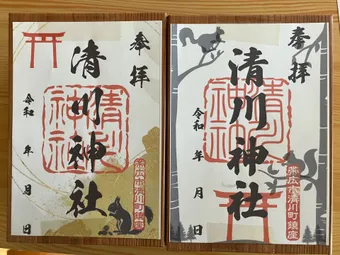 奉拝
清川神社
清川神社
令和 年 月 日
帯広市清川町鎮座
奉拝
清川神社
清川神社
令和 年 月 日
帯広市清川町鎮座